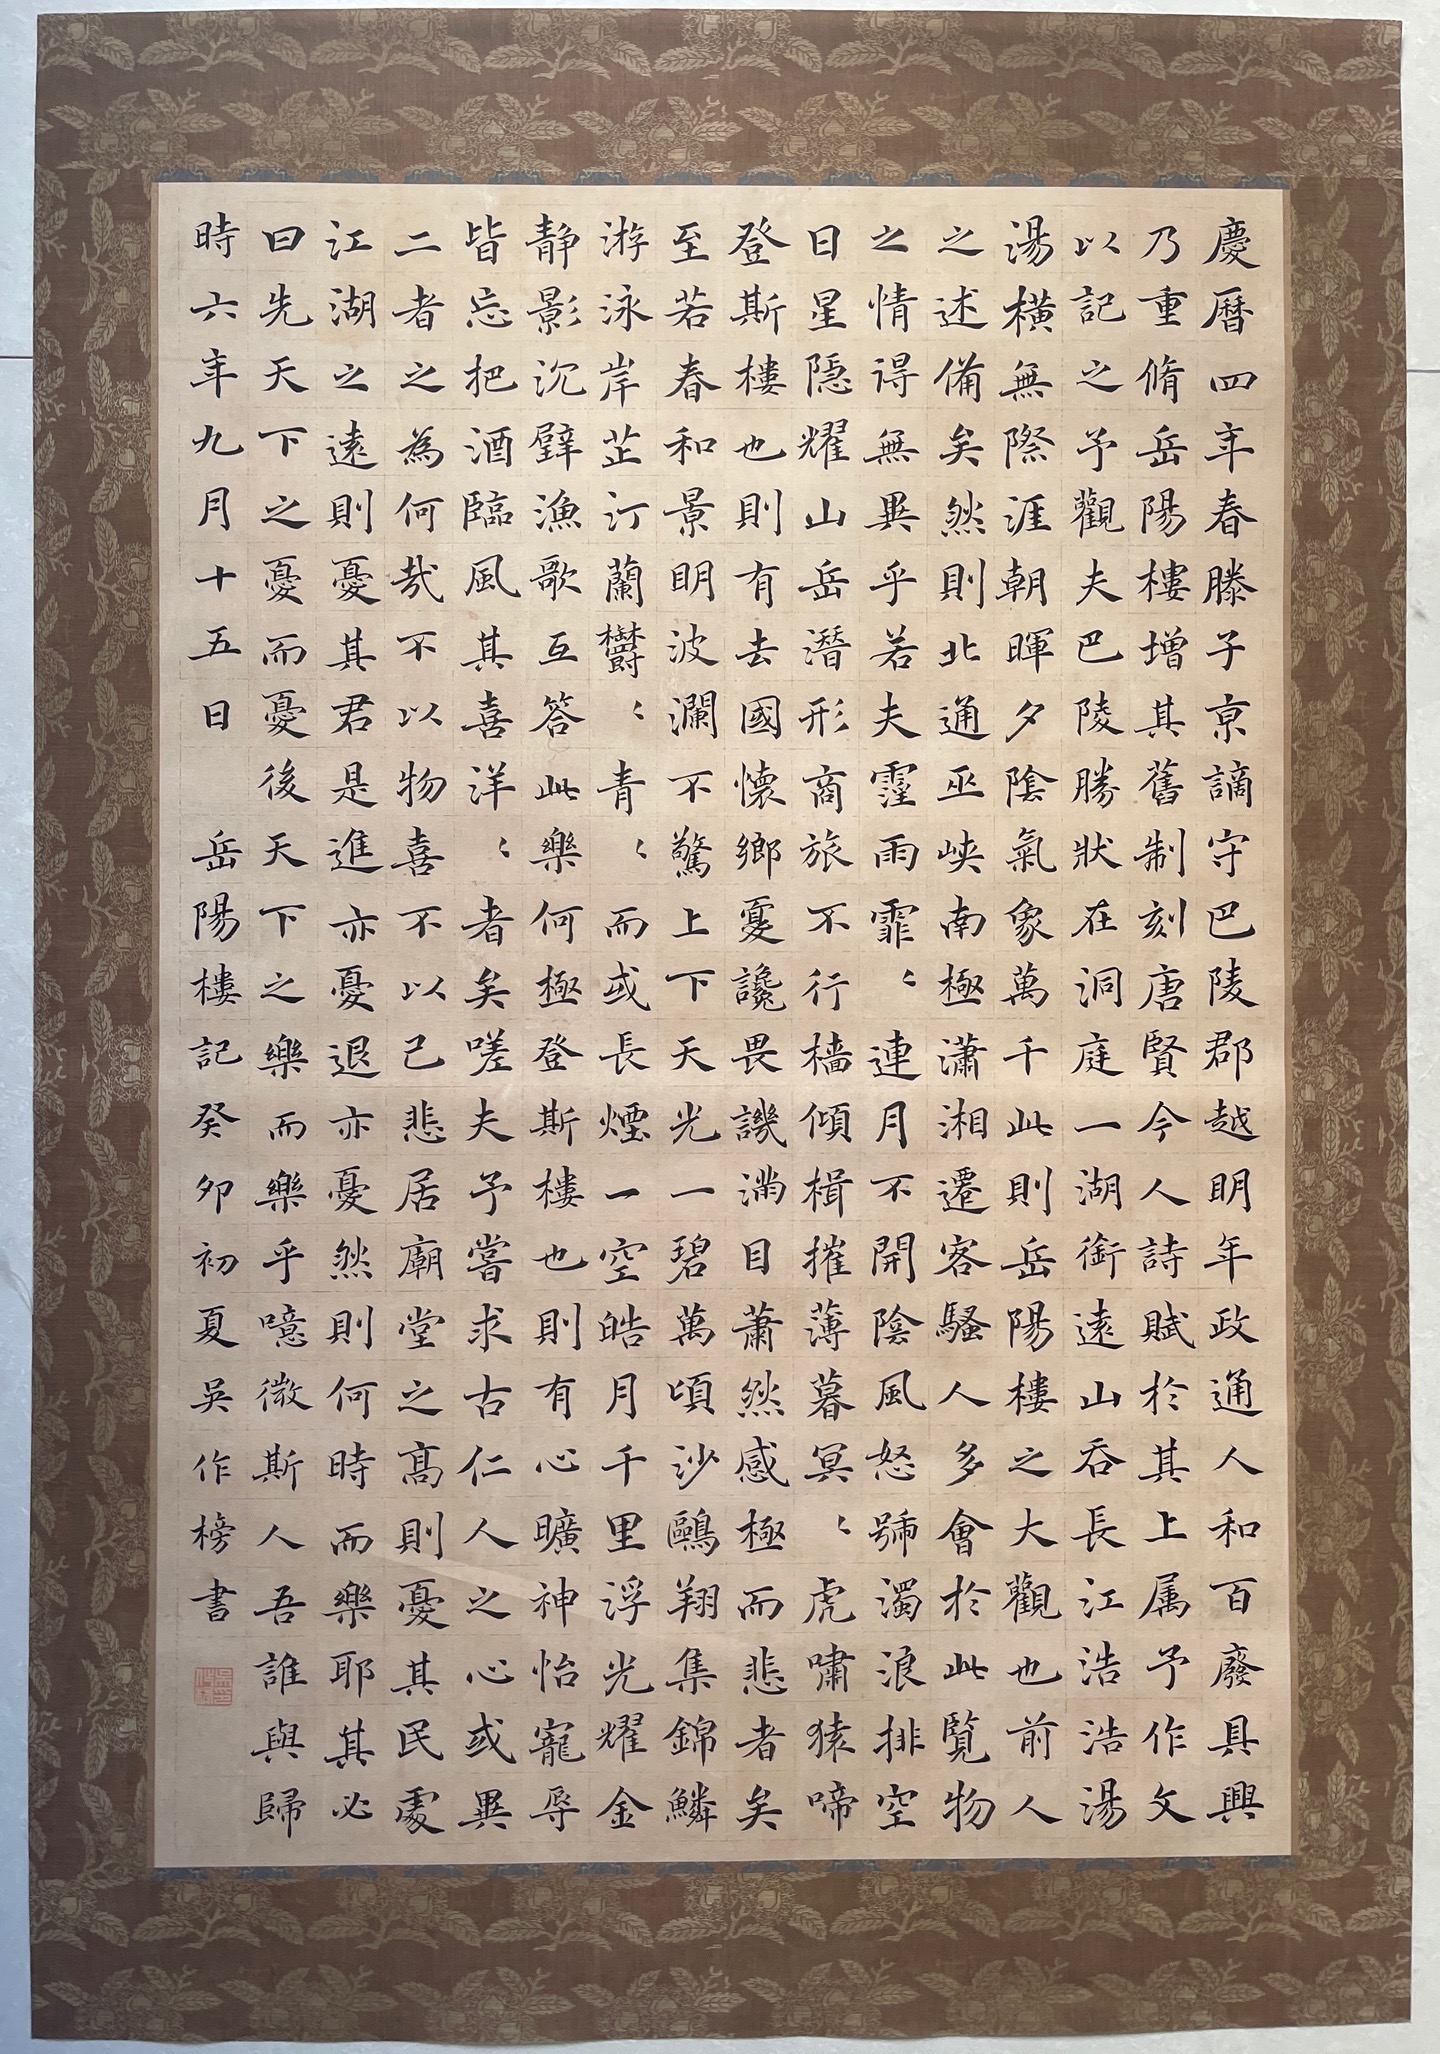 慶暦四年春滕子京謫守巴陵郡越明年政通人和百廢具興
乃重脩岳陽樓增其舊制刻唐賢今人詩賦於其上属予作文
以記之予觀夫巴陵勝狀在洞庭一湖銜遠山吞長江浩浩湯
湯橫無際涯朝暉夕陰氣象萬千此則岳陽樓之大觀也前人
之述備矣然則北通巫峽南極瀟湘遷客騷人多會於此覽物
之情得無異乎若夫霪雨霏〻連月不開陰風怒號濁浪排空
日星隱耀山岳潛形商旅不行檣傾楫摧薄暮冥〻虎嘯猿啼
登斯樓也則有去國懷鄉憂讒畏譏滿目蕭然感極而悲者矣
至若春和景明波瀾不驚上下天光一碧萬頃沙鷗翔集錦鱗
游泳岸芷汀蘭欝〻青〻而或長煙一空皓月千里浮光耀金
静影沉璧漁歌互答此樂何極登斯樓也則有心曠神怡寵辱
皆忘把酒臨風其喜洋〻者矣嗟夫予嘗求古仁人之心或異
二者之為何哉不以物喜不以己悲居廟堂之高則憂其民處
江湖之遠則憂其君是進亦憂退亦憂然則何時而樂耶其必
曰先天下之憂而憂後天下之樂而樂乎噫微斯人吾誰與歸
時六年九月十五日 岳陽樓記癸卯初夏吳作榜書